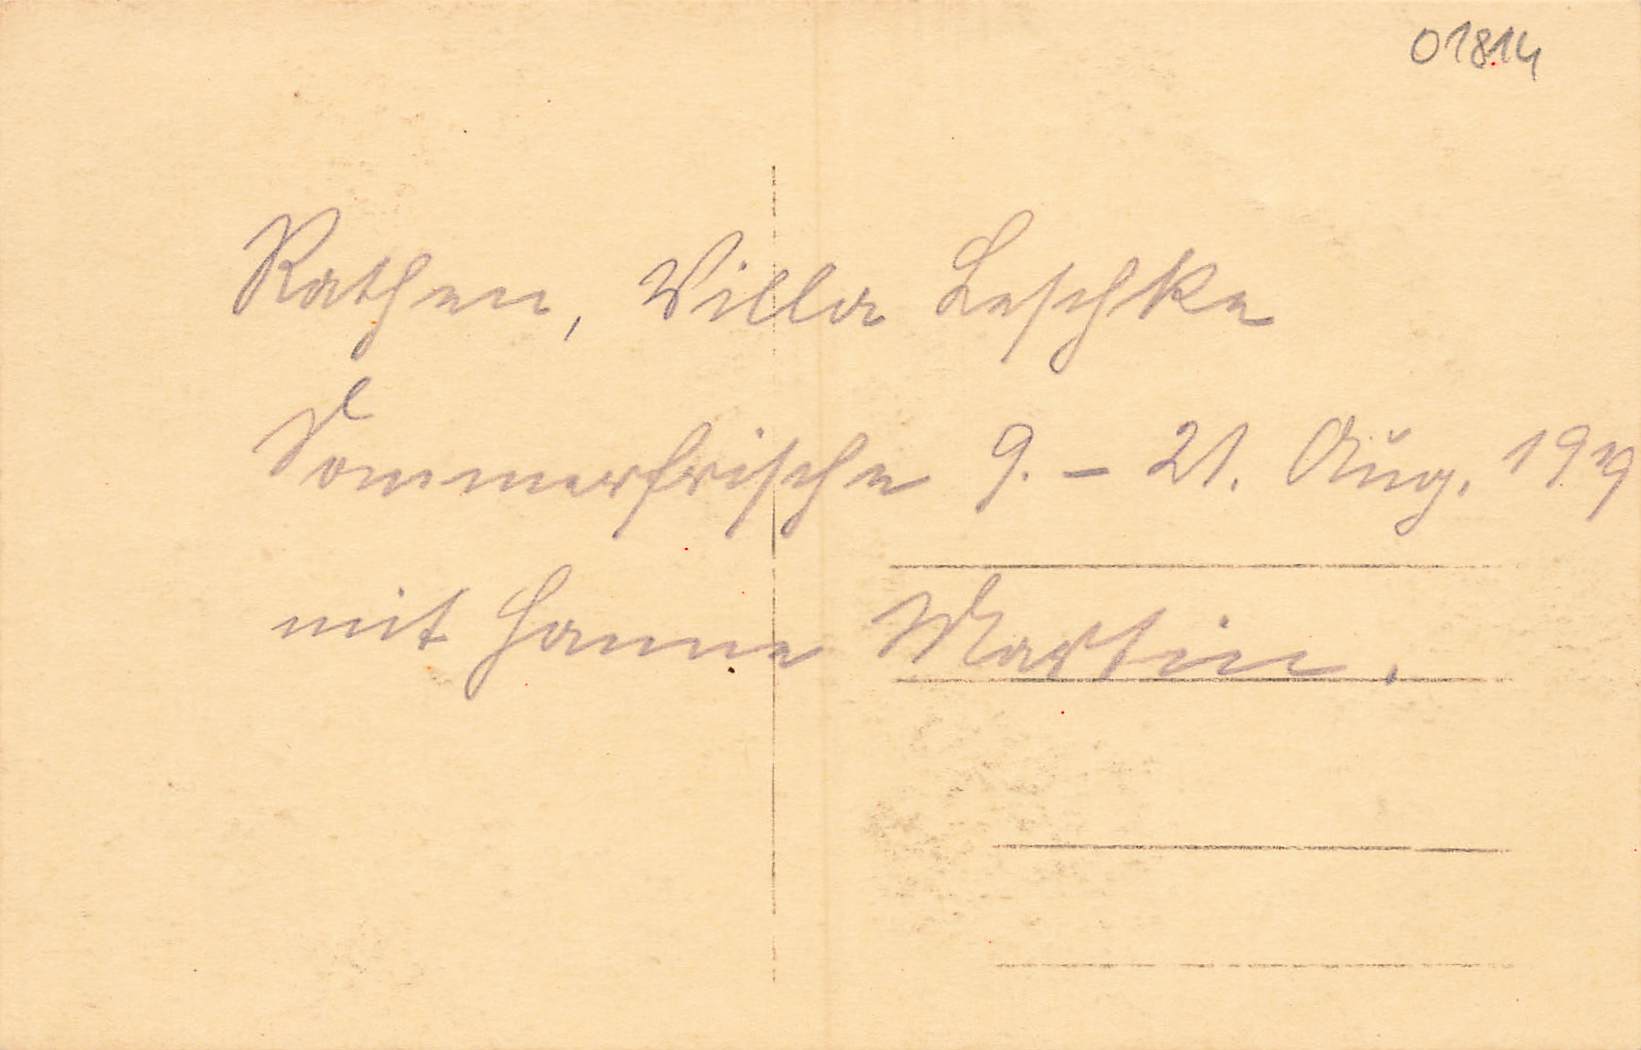 01814
Rathen, Villa Leschke
Sommerfrische 9. – 21. Aug.
mit Hanne Martin.